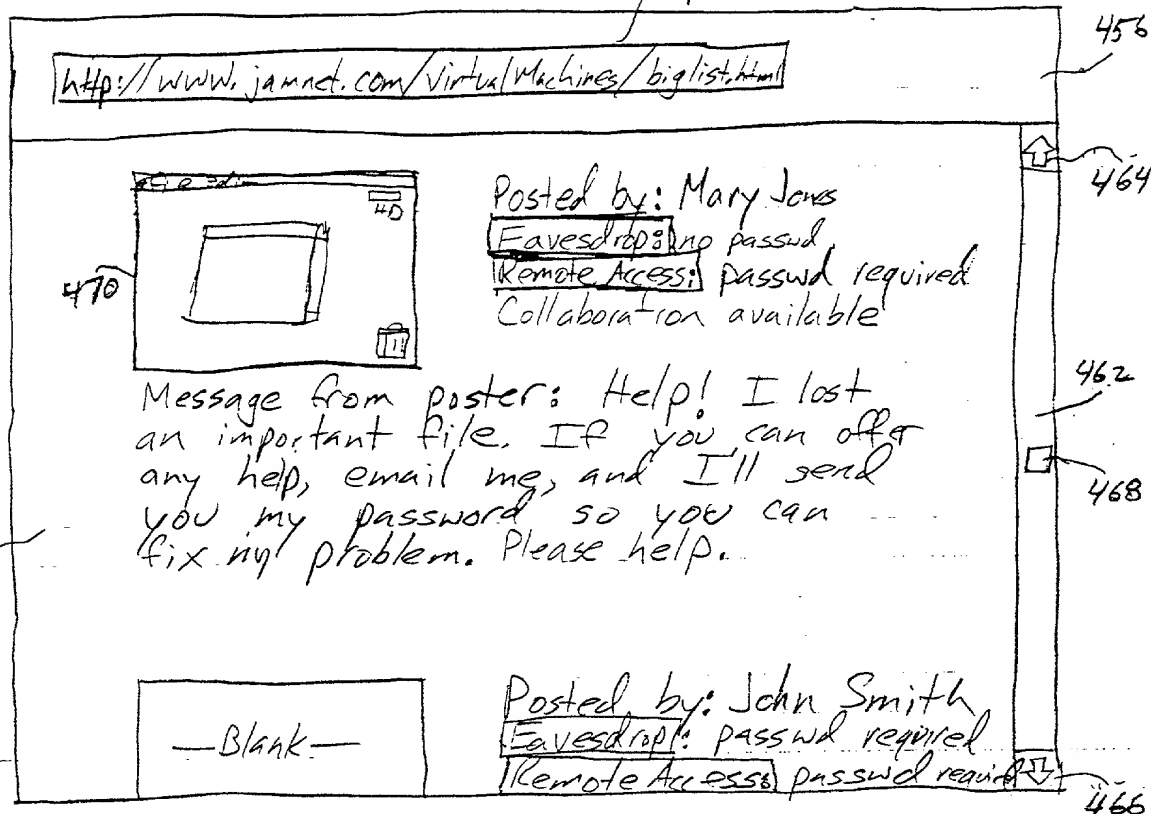 456
http://www.jamnet.com/VirtualMachines/biglist.html
464
HD
470
Posted by: Mary Jones
Eavesdrop: no passwd
Remote Access: passwd required
Collaboration available
Message from poster: Help! I lost
an important file. If you can offer
any help, email me, and I'll send
you my password so you can
fix my problem. Please help.
462
468
—Blank—
Posted by: John Smith
Eavesdrop: passwd required
Remote Access: passwd required
466